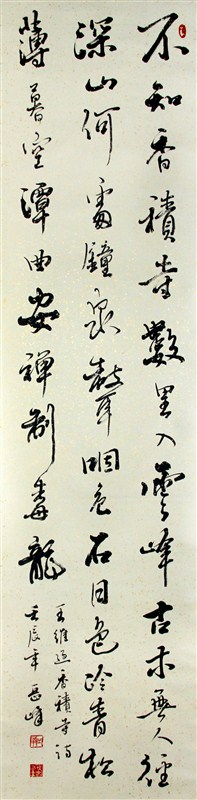 不知香積寺數里入雲峰古木無人徑
深山何處鐘泉聲咽危石日色冷青松
薄暮空潭曲安禪制毒龍
王維過香積寺詩
壬辰年 峰